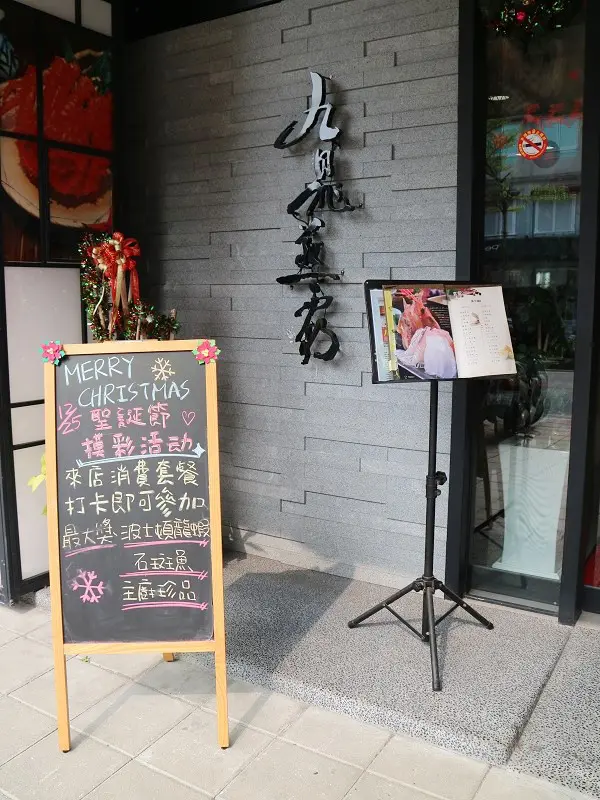 MERRY
CHRISTMAS
12/25 聖誕節
摸彩活动
來店消費套餐
打卡即可參加
最大獎 波士頓龍蝦
石斑魚
主廚珍品